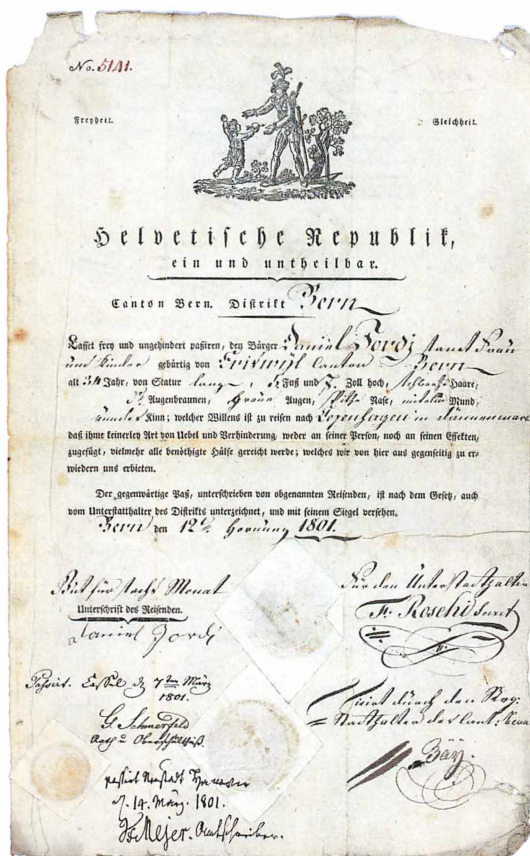 No. 5141.
Freyheit. Gleichheit.
Helvetische Republik,
ein und untheilbar.
Canton Bern. Distrikt Bern
Lasset frey und ungehindert paßiren, den Bürger Daniel Jordi samt Frau
und Kinder gebürtig von Eriswyl Canton Bern
alt 34 Jahr, von Statur lang, 5 Fuß und Zoll hoch, schwarze Haare,
Augenbraunen, graue Augen, Nase, mittelm Mund,
rundes Kinn; welcher Willens ist zu reisen nach Copenhagen in Dännenmark
daß ihme keinerley Art von Uebel und Verhinderung, weder an seiner Person, noch an seinen Effekten,
zugefügt, vielmehr alle benöthigte Hülfe gericht werde; welches wir von hier aus gegenseitig zu er-
wiedern uns erbieten.
Der gegenwärtige Paß, unterschrieben von obgenannten Reisenden, ist nach dem Gesetz, auch
vom Unterstatthalter des Distrikts unterzeichnet, und mit seinem Siegel versehen.
Bern den 12t. Hornung 1801.
Gut für sechs Monat
Unterschrift des Reisenden.
Daniel Jordi
Für den Unterstatthalter
Roschi Secret
Passirt. Cassel d 7ten März
1801.
G.
Rath u Oberschultheiß.
passirt Neustadt Hannover
d. 14. März. 1801.
Meyer. Amtschreiber.
Visirt durch den Reg:
Statthalter des Cant: Bern
Bay